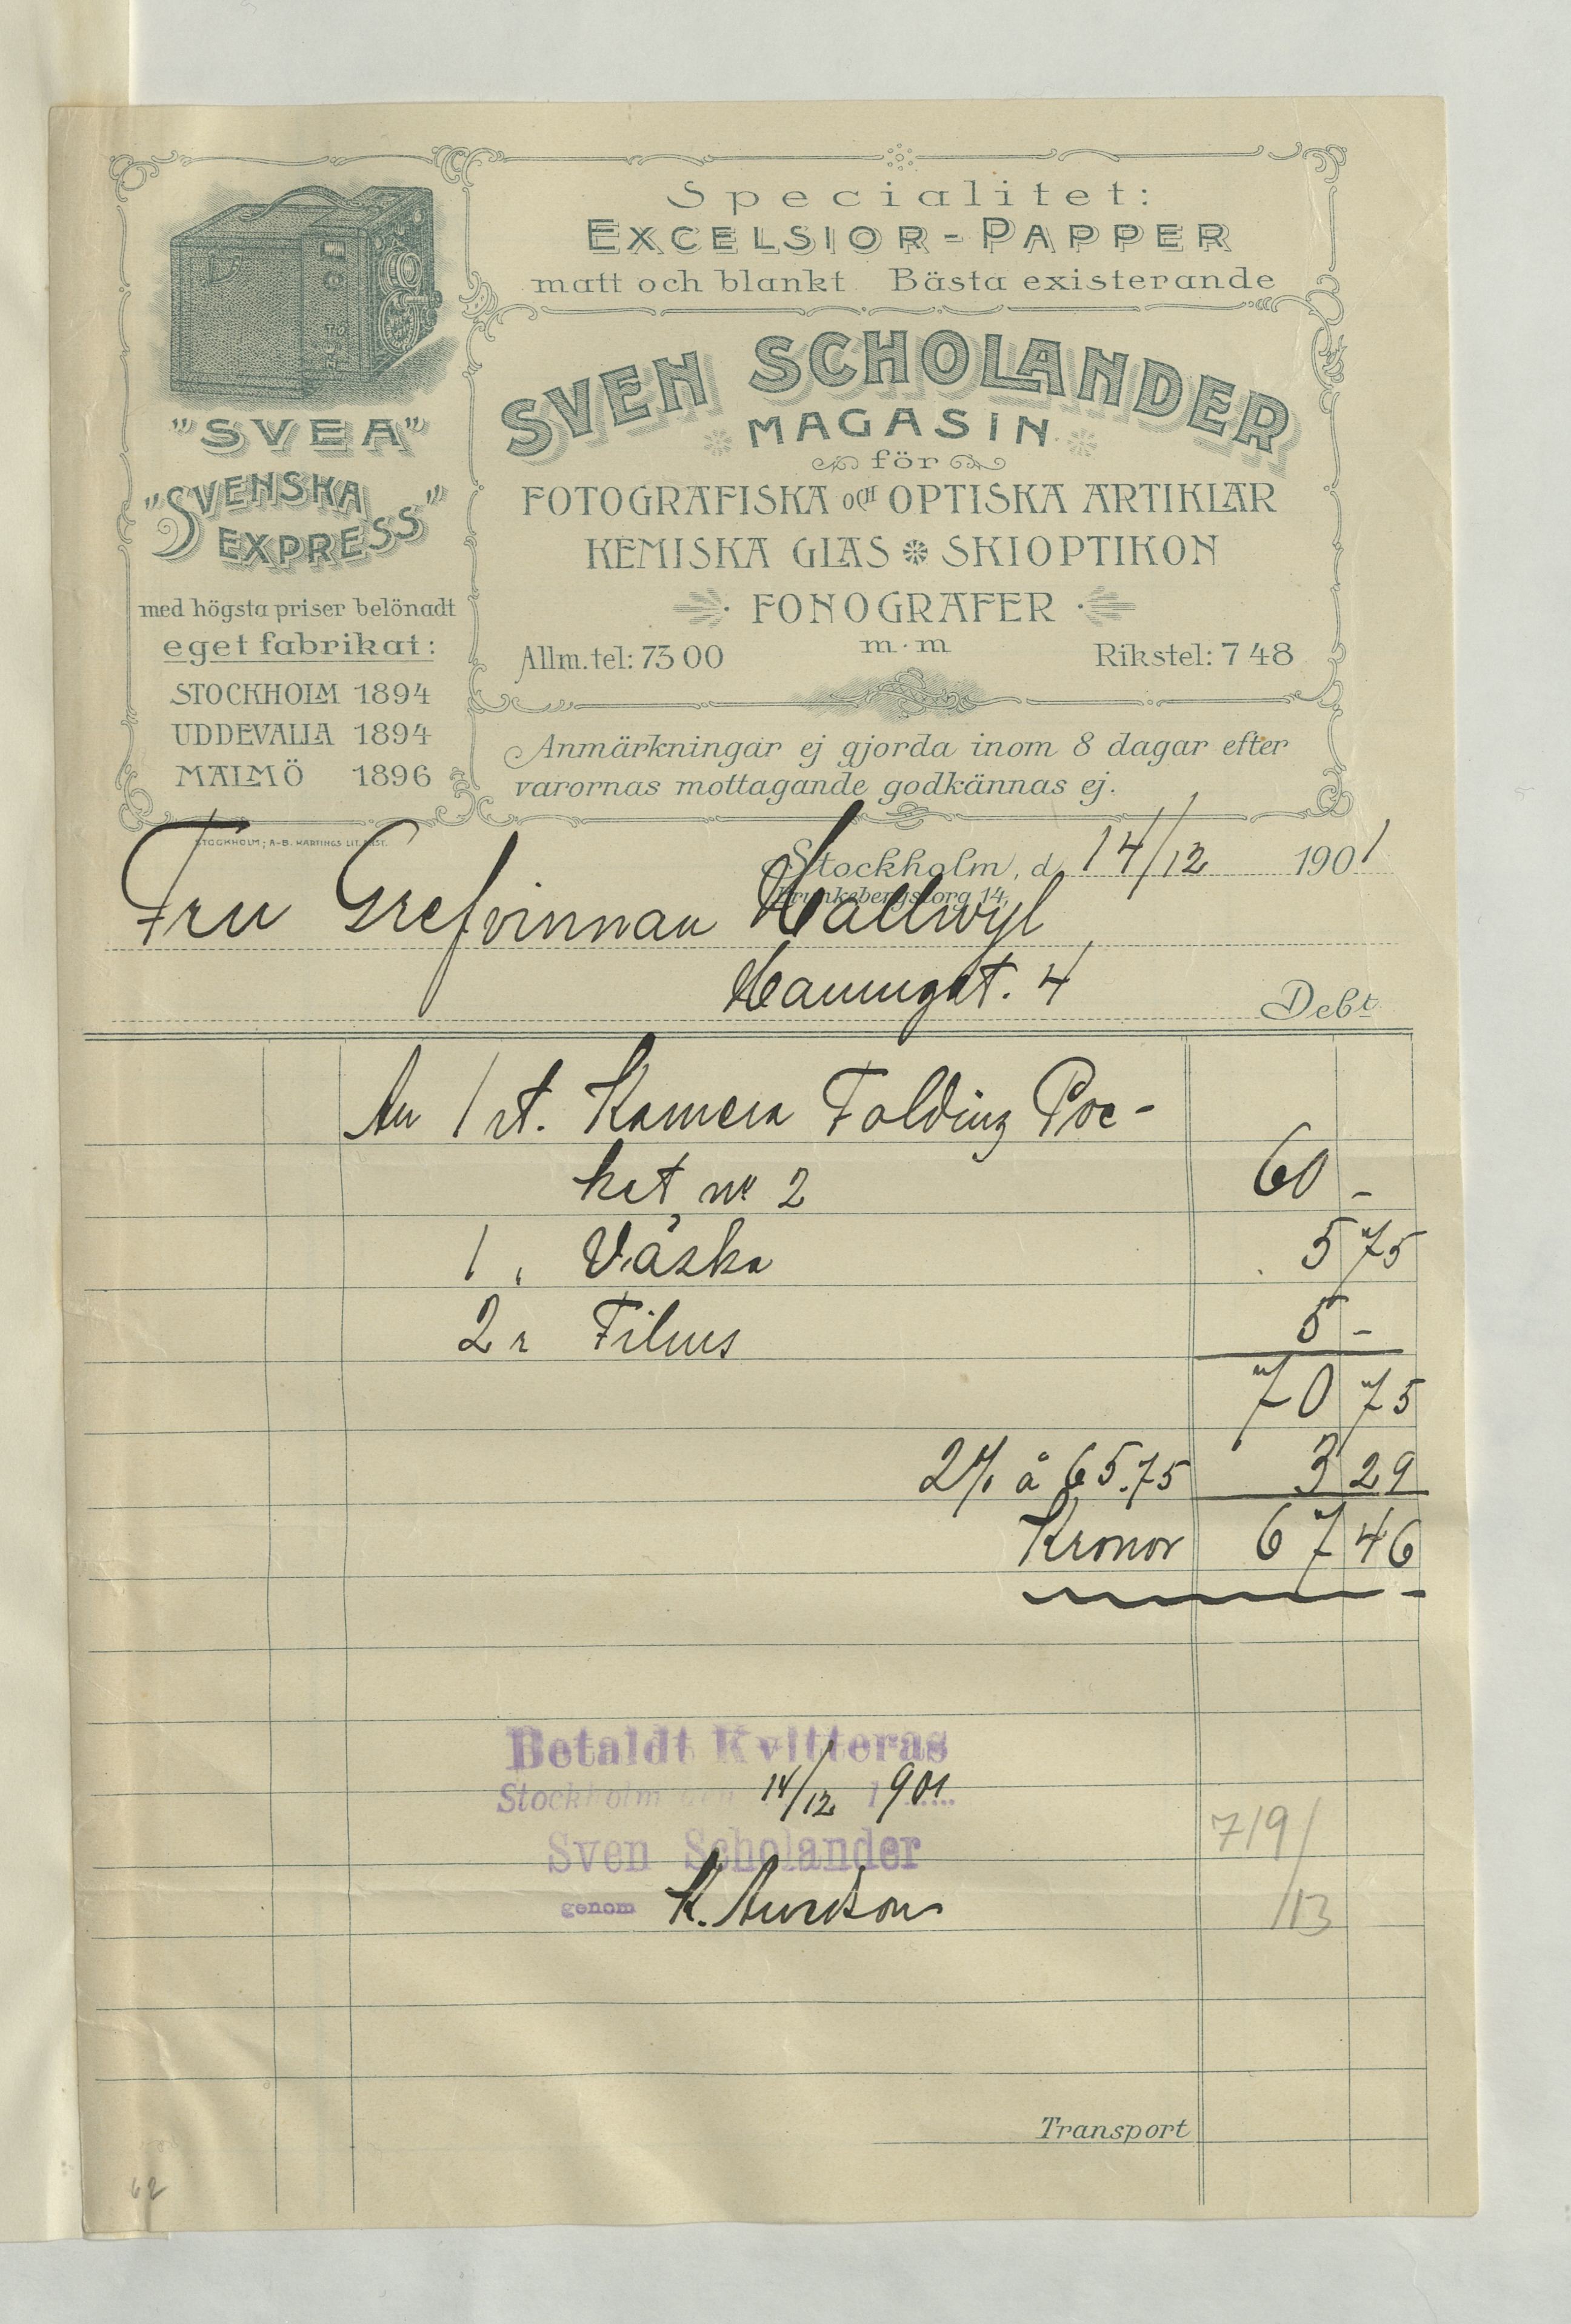 Specialitet:
EXCELSIOR-PAPPER
matt och blankt. Bästa existerande
"SVEA"
"SVENSKA
EXPRESS"
med högsta priser belönadt
eget fabrikat:
STOCKHOLM 1894
UDDEVALLA 1894
MALMÖ 1896
STOCKHOLM; A-B. HARTINGS LIT. ANST.
SVEN SCHOLANDER
MAGASIN
för
FOTOGRAFISKA OCH OPTISKA ARTIKLAR
KEMISKA GLAS SKIOPTIKON
FONOGRAFER
m.m
Allm. tel: 73 00 Rikstel: 7 48
Anmärkningar ej gjorda inom 8 dagar efter
varornas mottagande godkännas ej.
Stockholm, d. 14/12 1901
Brunkebergstorg 14,
Fru Grefvinnan Hallwyl
Hamngat. 4
Debt
An 1 st. Kamera Folding Poc-
ket nr 2 60 -
1 " Väska 5 75
2 " Films 5 -
70 75
à 65.75 3 29
Kronor 67 46
Betaldt Kvitteras
Stockholm den 14/12 1901
Sven Scholander
genom K.
719/
/13
Transport
62